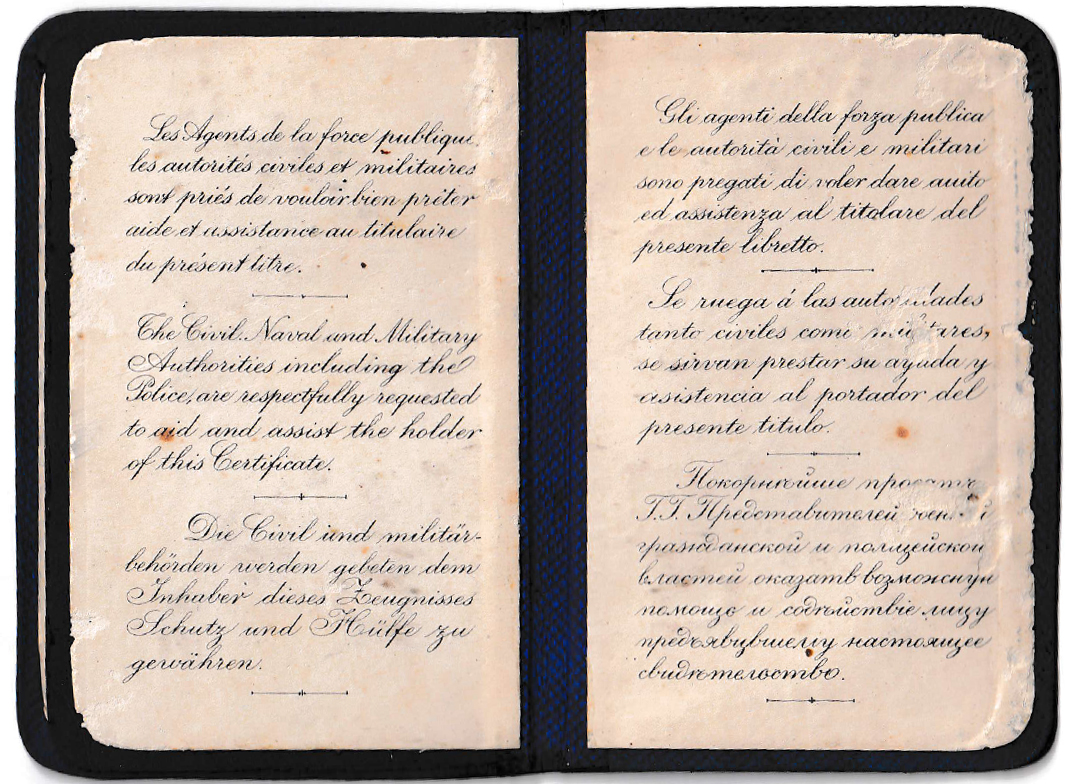 Les Agents de la force publique,
les autorités civiles et militaires
sont priés de vouloir bien prêter
aide et assistance au titulaire
du présent titre.
The Civil Naval and Military
Authorities including the
Police, are respectfully requested
to aid and assist the holder
of this Certificate.
Die Civil und militär-
behörden werden gebeten dem
Inhaber dieses Zeugnisses
Schutz und Hülfe zu
gewähren.
Gli agenti della forza publica
e le autorità civili e militari
sono pregati di voler dare aiuto
ed assistenza al titolare del
presente libretto.
Se ruega á las
tanto civiles como
se sirvan prestar su ayuda y
asistencia al portador del
presente titulo.
Покорнѣйше
Г.Г. Представителей
гражданской и полицейской
властей оказать возможную
помощь и содѣйствіе лицу
предъявившему настоящее
свидѣтельство.